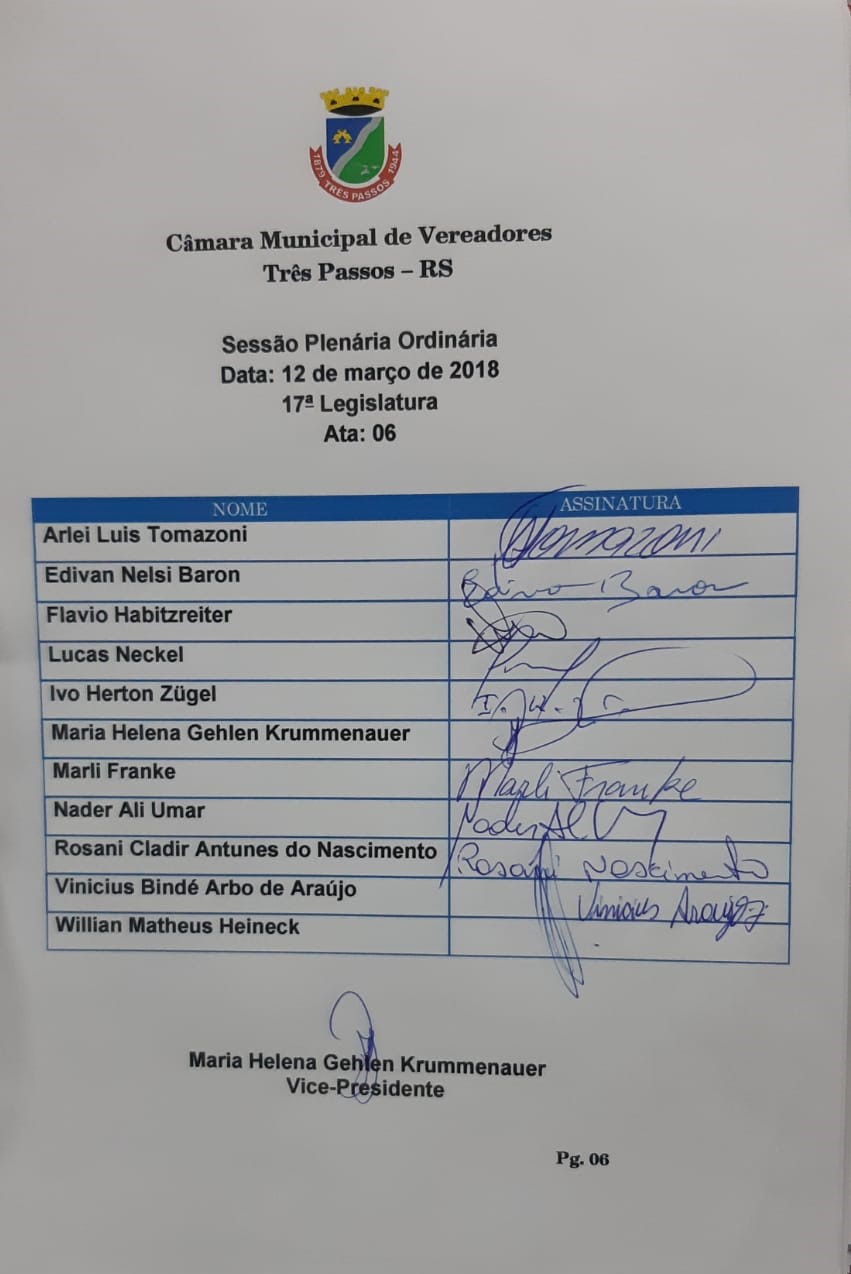 1879 TRES PASSOS 1944
Câmara Municipal de Vereadores
Três Passos – RS
Sessão Plenária Ordinária
Data: 12 de março de 2018
17ª Legislatura
Ata: 06
NOME ASSINATURA
Arlei Luis Tomazoni Tomazoni
Edivan Nelsi Baron Baron
Flavio Habitzreiter
Lucas Neckel
Ivo Herton Zügel
Maria Helena Gehlen Krummenauer
Marli Franke Marli Franke
Nader Ali Umar Nader
Rosani Cladir Antunes do Nascimento Rosani Nascimento
Vinicius Bindé Arbo de Araújo Vinicius Araújo
Willian Matheus Heineck
Maria Helena Gehlen Krummenauer
Vice-Presidente
Pg. 06